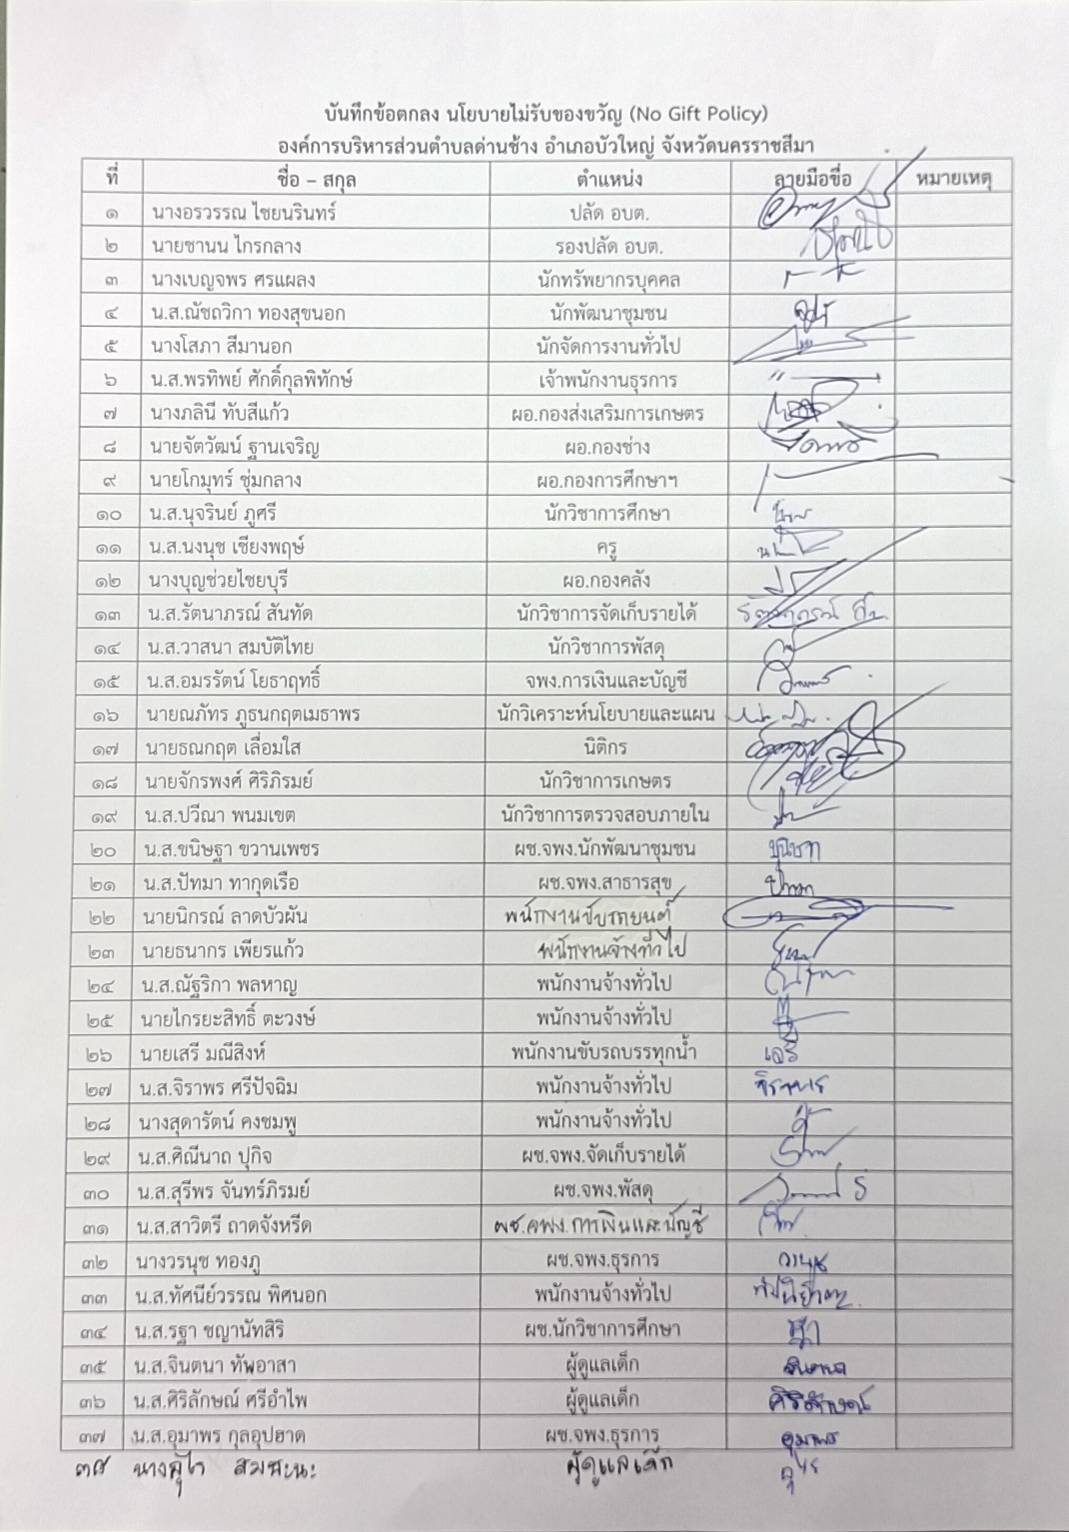 บันทึกข้อตกลง นโยบายไม่รับของขวัญ (No Gift Policy)
องค์การบริหารส่วนตำบลด่านช้าง อำเภอบัวใหญ่ จังหวัดนครราชสีมา
ที่ ชื่อ – สกุล ตำแหน่ง ลายมือชื่อ หมายเหตุ
๑ นางอรวรรณ ไชยนรินทร์ ปลัด อบต.
๒ นายชานน ไกรกลาง รองปลัด อบต.
๓ นางเบญจพร ศรแผลง นักทรัพยากรบุคคล
๔ น.ส.ณัชถวิกา ทองสุขนอก นักพัฒนาชุมชน
๕ นางโสภา สีมานอก นักจัดการงานทั่วไป
๖ น.ส.พรทิพย์ ศักดิ์กุลพิทักษ์ เจ้าพนักงานธุรการ
๗ นางภลินี ทับสีแก้ว ผอ.กองส่งเสริมการเกษตร
๘ นายจัตวัฒน์ ฐานเจริญ ผอ.กองช่าง
๙ นายโกมุทร์ ชุ่มกลาง ผอ.กองการศึกษาฯ
๑๐ น.ส.นุจรินย์ ภูศรี นักวิชาการศึกษา
๑๑ น.ส.นงนุช เชียงพฤษ์ ครู
๑๒ นางบุญช่วยไชยบุรี ผอ.กองคลัง
๑๓ น.ส.รัตนาภรณ์ สันทัด นักวิชาการจัดเก็บรายได้
๑๔ น.ส.วาสนา สมบัติไทย นักวิชาการพัสดุ
๑๕ น.ส.อมรรัตน์ โยธาฤทธิ์ จพง.การเงินและบัญชี
๑๖ นายณภัทร ภูธนกฤตเมธาพร นักวิเคราะห์นโยบายและแผน
๑๗ นายธณกฤต เลื่อมใส นิติกร
๑๘ นายจักรพงศ์ ศิริภิรมย์ นักวิชาการเกษตร
๑๙ น.ส.ปวีณา พนมเขต นักวิชาการตรวจสอบภายใน
๒๐ น.ส.ขนิษฐา ขวานเพชร ผช.จพง.นักพัฒนาชุมชน ขนิษฐา
๒๑ น.ส.ปัทมา ทากุดเรือ ผช.จพง.สาธารสุข ปัทมา
๒๒ นายนิกรณ์ ลาดบัวผัน พนักงานขับรถยนต์
๒๓ นายธนากร เพียรแก้ว พนักงานจ้างทั่วไป
๒๔ น.ส.ณัฐริกา พลหาญ พนักงานจ้างทั่วไป
๒๕ นายไกรยะสิทธิ์ ตะวงษ์ พนักงานจ้างทั่วไป
๒๖ นายเสรี มณีสิงห์ พนักงานขับรถบรรทุกน้ำ เสรี
๒๗ น.ส.จิราพร ศรีปัจฉิม พนักงานจ้างทั่วไป จิราพร
๒๘ นางสุดารัตน์ คงชมพู พนักงานจ้างทั่วไป
๒๙ น.ส.ศิณีนาถ ปุกิจ ผช.จพง.จัดเก็บรายได้
๓๐ น.ส.สุรีพร จันทร์ภิรมย์ ผช.จพง.พัสดุ
๓๑ น.ส.สาวิตรี ถาดจังหรีด ผช.จพง.การเงินและบัญชี
๓๒ นางวรนุช ทองภู ผช.จพง.ธุรการ วรนุช
๓๓ น.ส.ทัศนีย์วรรณ พิศนอก พนักงานจ้างทั่วไป
๓๔ น.ส.รฐา ชญานัทสิริ ผช.นักวิชาการศึกษา
๓๕ น.ส.จินตนา ทัพอาสา ผู้ดูแลเด็ก จินตนา
๓๖ น.ส.ศิริลักษณ์ ศรีอำไพ ผู้ดูแลเด็ก ศิริลักษณ์
๓๗ น.ส.อุมาพร กุลอุปฮาด ผช.จพง.ธุรการ อุมาพร
๓๘ ผู้ดูแลเด็ก